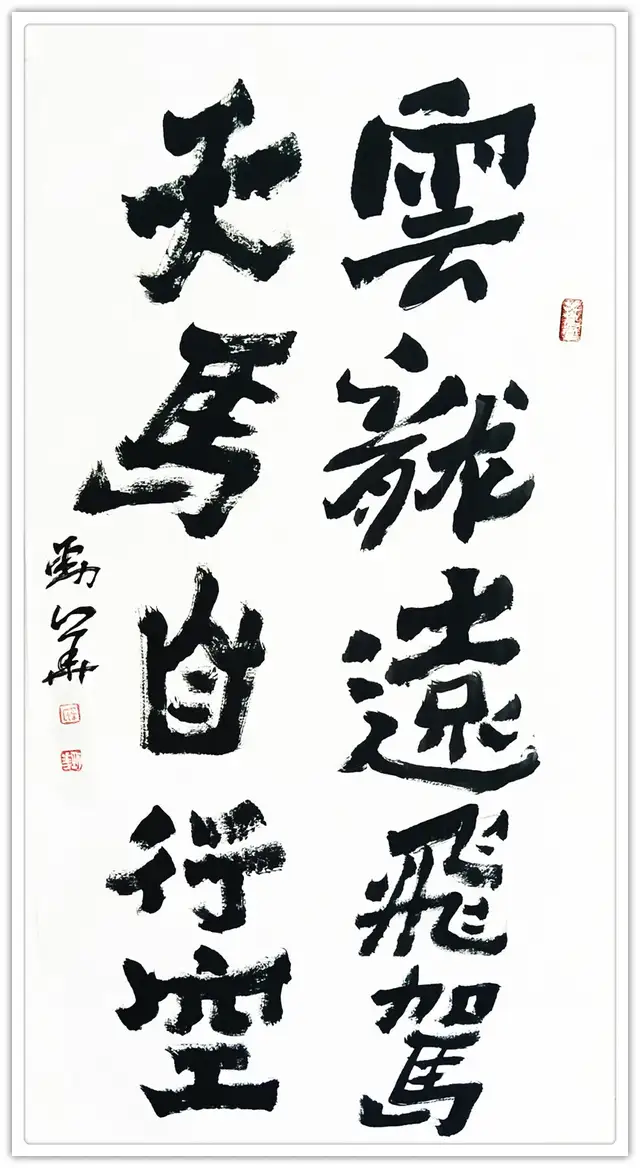 雲龍遠飛駕
天馬自行空
勁華